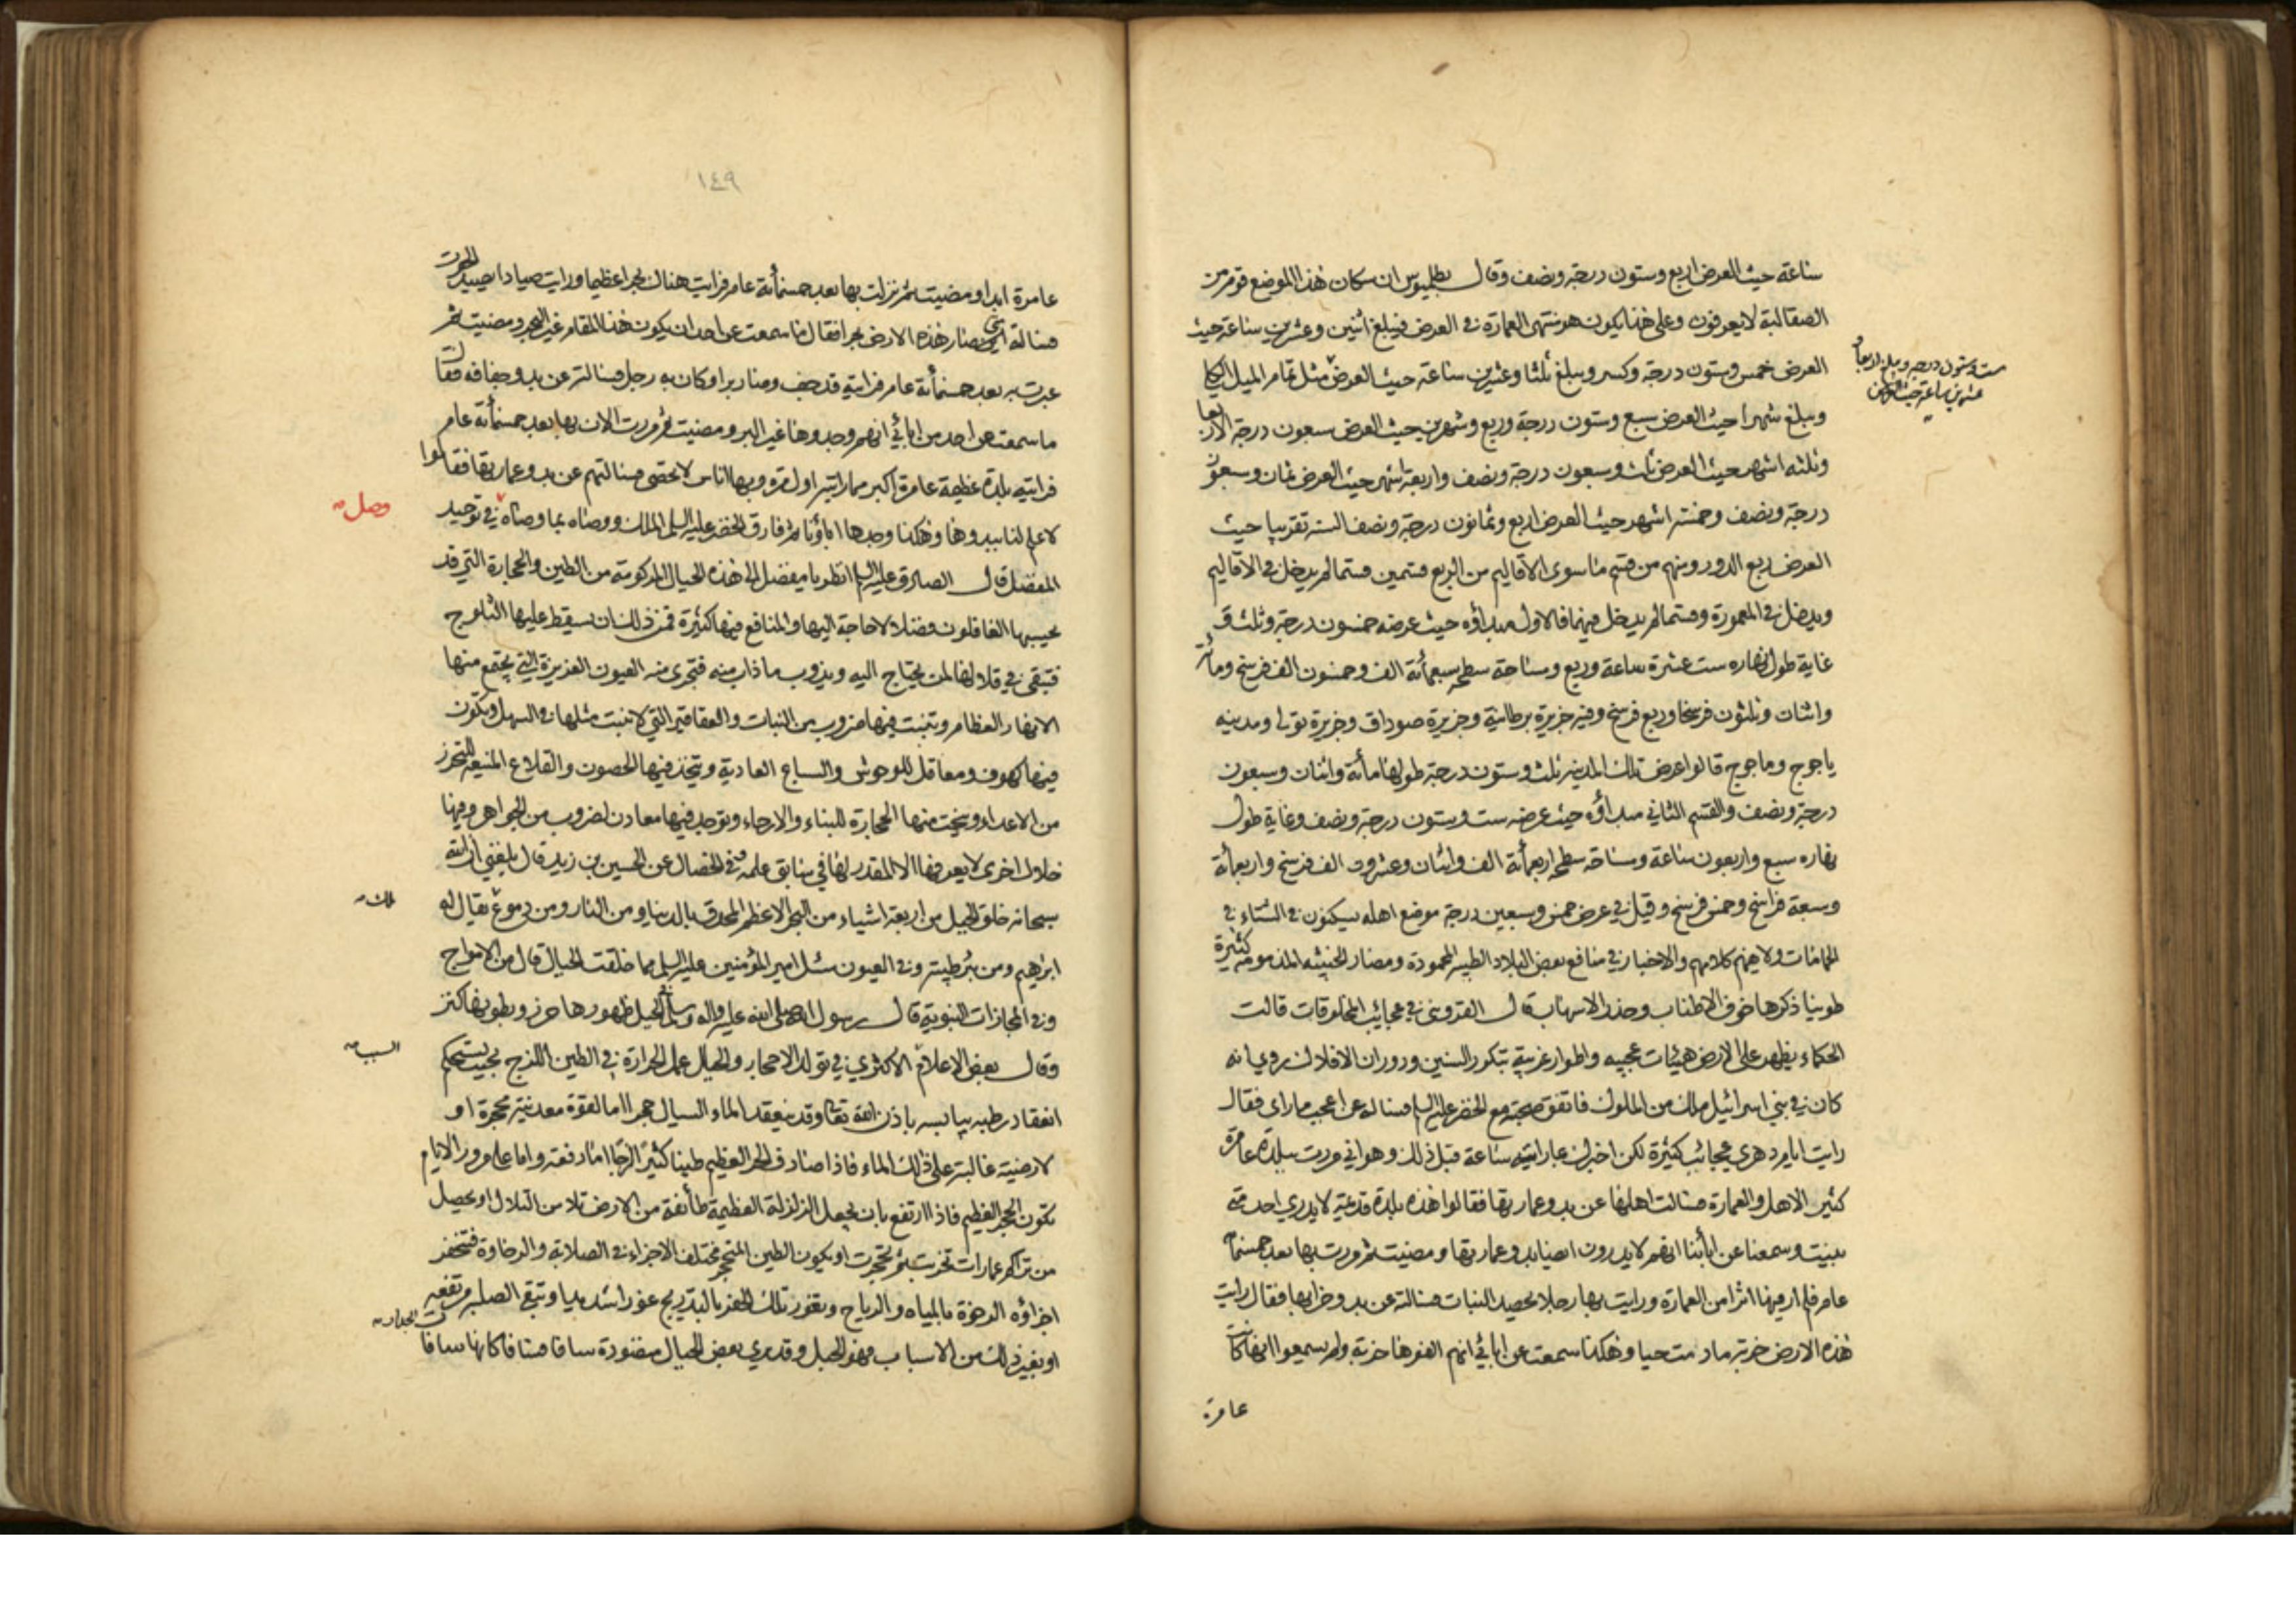 ساعة حيث العرض اربع وستون درجة ونصف وقال بطلميوس ان سكان هذا الموضع قوم من
الصقالبة لا يعرفون وعلى هذا يكون هو منتهى العمارة في العرض فيبلغ اثنين وعشرين ساعة حيث
العرض خمس وستون درجة وكسر ويبلغ ثلثا وعشرين ساعة حيث العرض مثل تمام الميل الكلي
ست وستون درجة ويبلغ اربعا
عشرين ساعة حيث العرض
ويبلغ شهرا حيث العرض سبع وستون درجة وربع وشهرين حيث العرض سبعون درجة الا ربعا
وثلثه اشهر حيث العرض ثلث وسبعون درجة ونصف واربعة اشهر حيث العرض ثمان وسبعون
درجة ونصف وخمسة اشهر حيث العرض اربع وثمانون درجة ونصف السنه تقريبا حيث
العرض ربع الدور ومنهم من قسم ما سوى الاقاليم من الربع قسمين قسما لم يدخل في الاقاليم
ويدخل في المعمورة وقسما لم يدخل فيهما فالاول مبداؤه حيث عرضه خمسون درجة وثلث و
غاية طول نهاره ست عشرة ساعة وربع ومساحة سطحه سبعمائة الف وخمسون الف فرسخ ومائة
واثنان وثلثون فرسخا وربع فرسخ وفيه جزيرة برطانية وجزيرة صوداق وجزيرة تولى ومدينه
ياجوج وماجوج قالوا عرض تلك المدينه ثلث وستون درجة طولها مائة واثنان وسبعون
درجة ونصف والقسم الثاني مبداؤه حيث عرضه ست وستون درجة ونصف وغاية طول
نهاره سبع واربعون ساعة ومساحة سطحه اربعمائة الف واثنان وعشرون الف فرسخ واربعمائة
وسبعة فراسخ وخمس فرسخ وقيل في عرض خمس وسبعين درجة موضع اهله يسكنون في الشتاء في
الحمامات ولا يفهم كلامهم والاخبار في منافع بعض البلاد الطيبه المحمودة ومضار الخبيثه المذمومه كثيرة
طوينا ذكرها خوف الاطناب وحذر الاسهاب قال القزويني في عجائب المخلوقات قالت
الحكماء يظهر على الارض هيئات عجيبه واطوار غريبة بتكرر السنين ودوران الافلاك روي انه
كان في بني اسرائيل ملك من الملوك فاتفق صحبته مع الخضر عليه السلام فساله عن اعجب ما راى فقال
رايت ايام دهري عجائب كثيرة لكن اخبرك عما رايته ساعة قبل ذلك وهو اني مررت ببلدة عامرة
كثير الاهل والعمارة فسالت اهلها عن بدو عمارتها فقالوا هذه بلدة قديمة لا يدري احد متى
بنيت وسمعنا عن ابائنا انهم لا يدرون ايضا بدو عمارتها ومضيت ثم مررت بها بعد خمسمائة
عام فلم ار فيها اثرا من العمارة ورايت بها رجلا يحصد النبات فسالته عن بدو خرابها فقال رايت
هذه الارض خربة ما دمت حيا وهكذا سمعت عن ابائي انهم الفوها خربة ولم يسمعوا انها كانت
عامرة
١٤٩
عامرة ابدا ومضيت ثم نزلت بها بعد خمسمائة عام فرايت هناك بحرا عظيما ورايت صيادا يصيد الحوت
فسالته متى صار هذه الارض بحرا فقال ما سمعت عن احد ان يكون هذا المقام غير البحر ومضيت ثم
عبرت به بعد خمسمائة عام فرايته قد جف وصار برا وكان به رجل فسالته عن بدو جفافه فقال
ما سمعت من احد من ابائي انهم وجدوها غير البر ومضيت ثم مررت الان بها بعد خمسمائة عام
فرايته بلدة عظيمة عامرة اكبر مما رايته اول مرة وبها اناس لا تحصى فسالتهم عن بدو عمارتها فقالوا
لا علم لنا ببدوها وهكذا وجدها اباؤنا ثم فارق الخضر عليه السلم الملك ووصاه بما وصاه في توحيد
وصل
المفضل قال الصادق عليه السلم انظر يا مفضل الى هذه الجبال المركومة من الطين والحجارة التي قد
يحسبها الغافلون فضلا لا حاجة اليها والمنافع فيها كثيرة فمن ذلك ان يسقط عليها الثلوج
فتبقى في قلالها لمن يحتاج اليه ويذوب ما ذاب منه فتجرى منه العيون الغزيرة التي يجتمع منها
الانهار العظام وتنبت فيها ضروب من النبات والعقاقير التي لا تنبت مثلها في السهل وتكون
فيها كهوف ومعاقل للوحوش والسباع العادية ويتخذ فيها الحصون والقلاع المنيعه للتحرز
من الاعداء وينحت منها الحجارة للبناء والارحاء وتوجد فيها معادن لضروب من الجواهر وفيها
خلال اخرى لا يعرفها الا المقدر لها في سابق علمه وفي الخصال عن الحسين بن زيد قال بلغني ان الله
سبحانه خلق الجبل من اربعة اشياء من البحر الاعظم المحدق بالدنيا ومن النار ومن دموع يقال له
ملك
ابراهيم ومن بئر طيبة وفي العيون سئل امير المؤمنين عليه السلم مما خلقت الجبال قال من الامواج
وفي المجازات النبوية قال رسول الله صلى الله عليه واله وسلم في الخيل ظهورها حرز وبطونها كنز
وقال بعض الاعلام الاكثري في تولد الاحجار والجبال عمل الحرارة في الطين اللزج بحيث يستحكم
السبب
انعقاد رطبه بيابسه باذن الله تعالى وقد ينعقد الماء السيال حجرا اما لقوة معدنية محجرة او
لارضية غالبة على ذلك الماء فاذا صادف الحر العظيم طينا كثيرا لزجا اما دفعة واما على مرور الايام
تكون الحجر العظيم فاذا ارتفع بان يجعل الزلزلة العظيمة طائفة من الارض تلا من التلال او يحصل
من تراكم عمارات تخربت ثم تحجرت او يكون الطين المتحجر مختلف الاجزاء في الصلابة والرخاوة فتنحفر
اجزاؤه الرخوة بالمياه والرياح وتغور تلك الحفر بالتدريج غورا شديدا وتبقى الصلبة مرتفعة
او بغير ذلك من الاسباب فهو الجبل وقد يرى بعض الجبال منضودة سافا فسافا كانها سافات الجدار